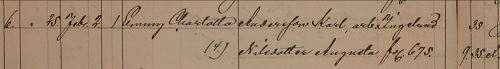 6. " 25 Febr. 2 1 Emmy Charlotta Andersson Karl, arb. Ingelund 38
(4) Nilsdotter Augusta fol 675. 9.35